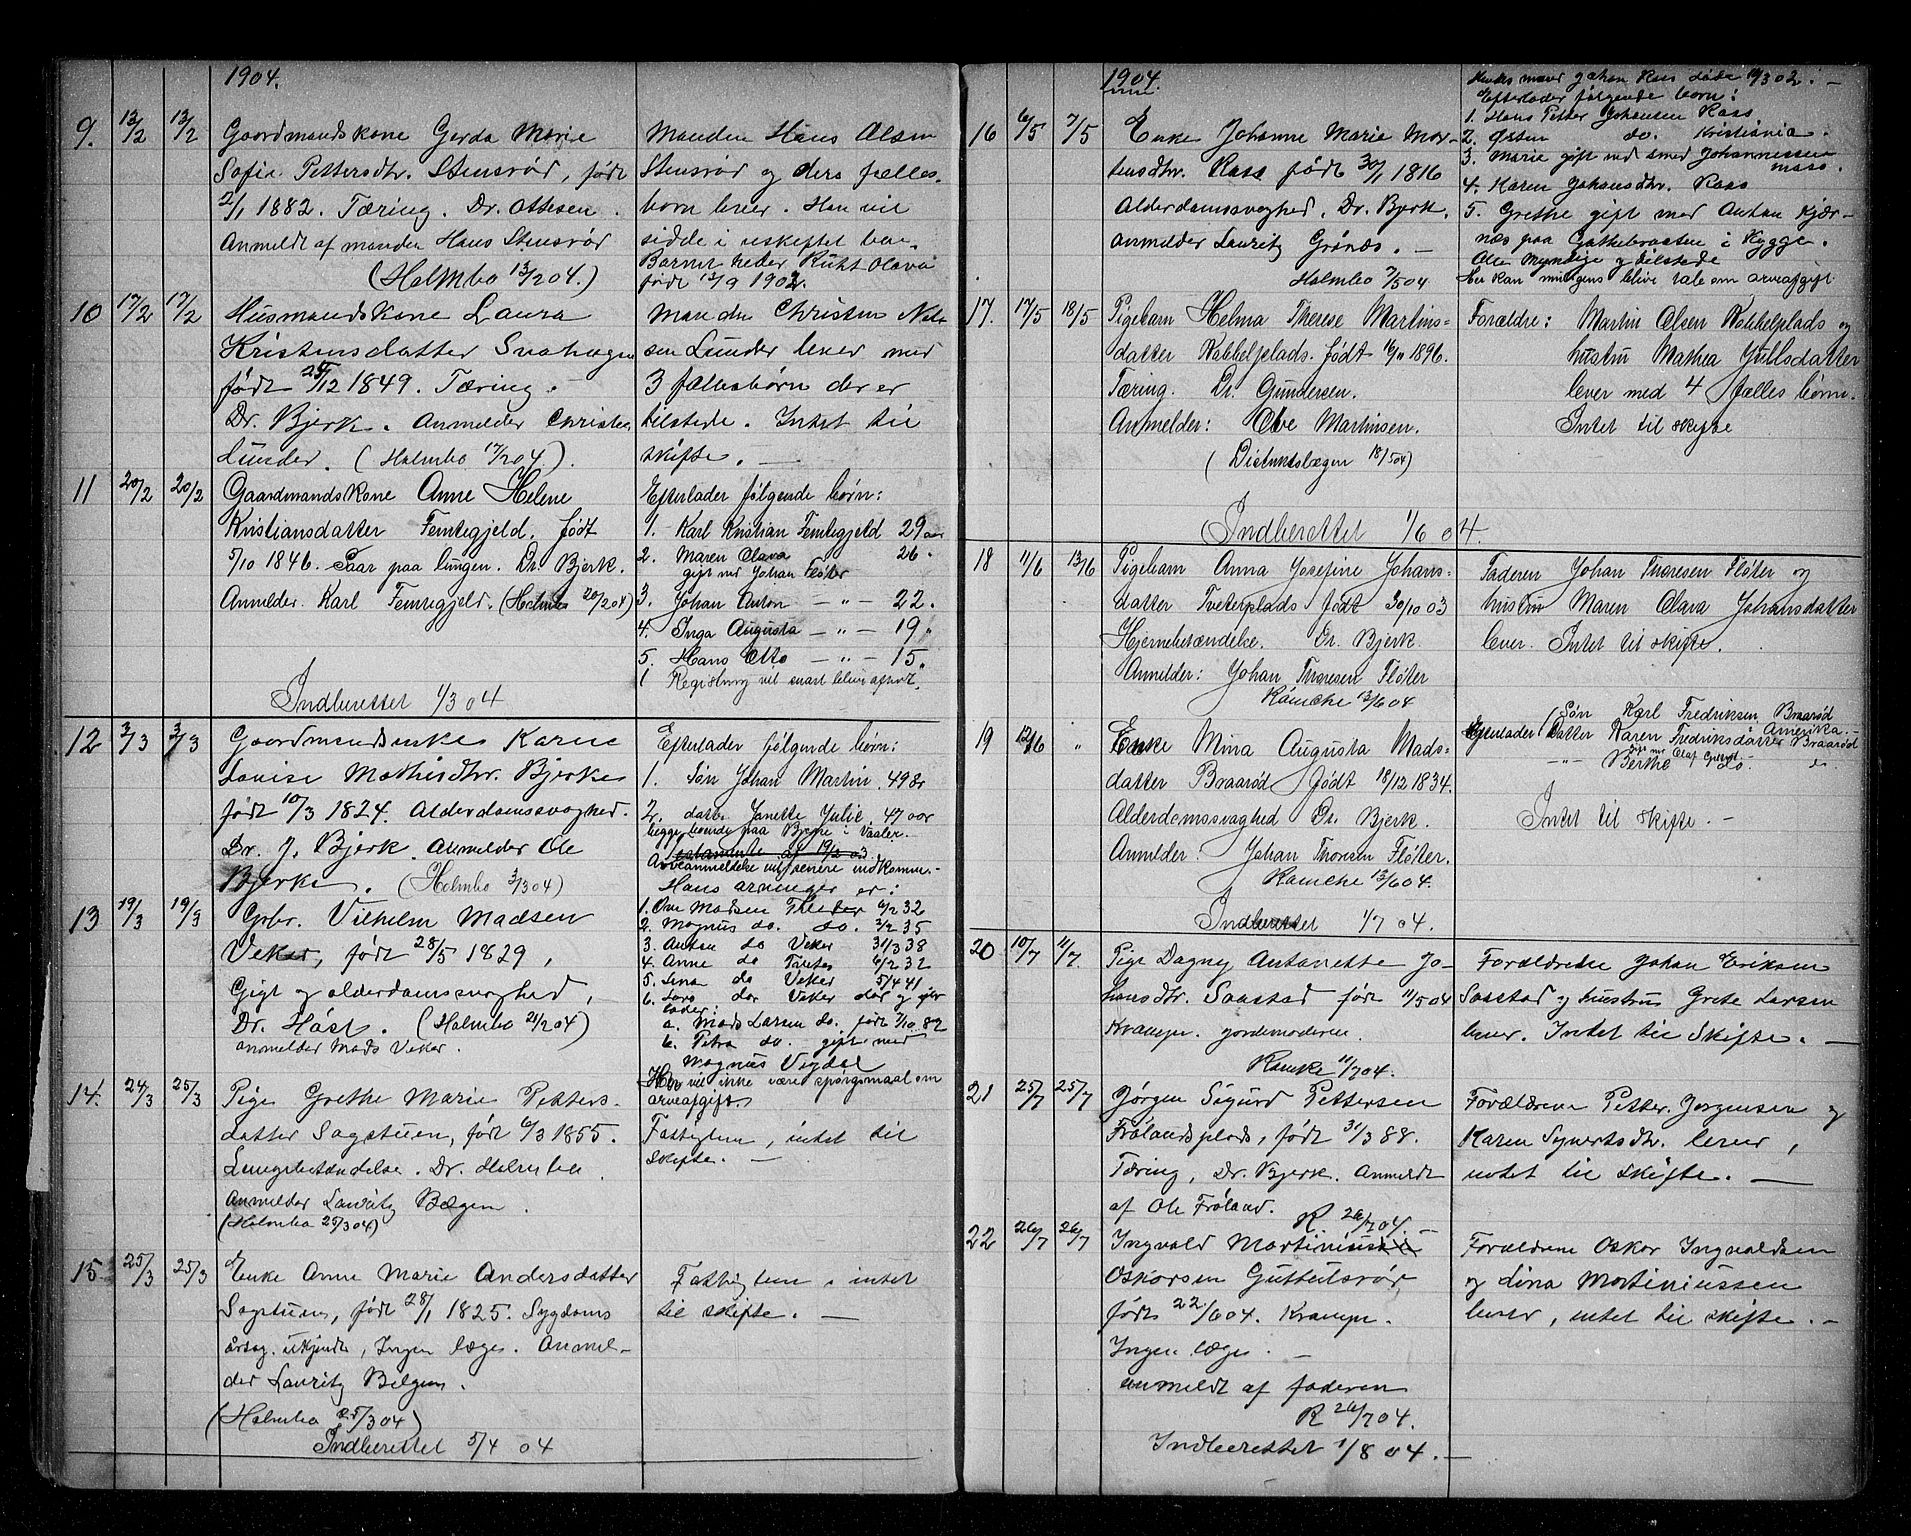 1904.
9. 13/2 13/2 Gaardmandskone Gerda Marie
Sofie Pettersdtr. Stensrød, født
2/1 1882. Tæring. Dr. Ottesen.
Anmeldt af manden Hans Stensrød
(Holmbo 13/2 04.)
Manden Hans Olsen
Stensrød og ders fælles-
barn lever. Han vil
sidde i uskiftet bo.
Barnet heder Ruht Olava
født 13/9 1902.
10 17/2 17/2 Husmandskone Laura
Kristensdatter Svahagen
født 25/12 1849. Tæring.
Dr. Bjerk. Anmelder Christen
Lunder. (Holmbo 17/2 04).
Manden Christen Nil-
sen Lunder lever med
3 fællesbørn der er
tilstede. Intet til
skifte. —
11 20/2 20/2 Gaardmandskone Anne Helene
Kristiansdatter Femtegjeld. født
5/10 1846. Saar paa lungen. Dr. Bjerk.
Anmelder. Karl Femtegjeld. (Holmbo 20/2 04)
Efterlader følgende børn:
1. Karl Kristian Femtegjeld 29 aar
2. Maren Olava 26 "
gift med Johan Fløter
3. Johan Anton — " — 22.
4. Inga Augusta — " — 19 "
5. Hans Otto — " — 15 "
( Registrering vil snart blive afholt.
Indberettet 1/3 04
12 3/3 3/3 Gaardmandsenke Karen
Lovise Mathisdtr. Bjerke
født 10/3 1824. Alderdomssvaghed.
Dr. J. Bjerk. Anmelder Ole
Bjerke. (Holmbo 3/3 04)
Efterlader følgende børn:
1. Søn Johan Martin. 49 år
2. datter Janette Julie. 47 aar
begge boende paa Bjerke i Vaaler.
testamente af 19/2 03.
Arveanmeldelse vil senere indkomme. -
13 19/3 19/3 Grbr. Vilhelm Madsen
Veker, født 28/5 1829,
Gigt og alderdomssvaghed,
Dr. Höst. (Holmbo 21/2 04)
anmelder Mads Veker.
Hans arvinger er:
1. Ove Madsen 6/2 32
2. Magnus do. do. 3/2 35
3. Anton do Veker 31/3 38
4. Anne do 6/2 32
5. Lina do Veker 5/4 41
6. Lars do Veker død og efter
lader:
a. Mads Larsen do. født 7/10 82
b. Petra do. - gift med
Magnus Vejdal
Her vil ikke være spørgsmaal om
arveafgift.
14. 24/3 25/3 Pige Grethe Marie Petters-
datter Sagstuen, født 6/3 1855.
Lungebetændelse. Dr. Holmboe
Anmelder Lauritz Bølgen.
(Holmbo 25/3 04)
Fattiglem, intet til
skifte. —
15 25/3 25/3 Enke Anne Marie Andersdatter
Sagstuen, født 28/1 1825. Sygdoms
årsag ukjendt, Ingen læge. Anmel-
der Lauritz Bølgen.
(Holmbo 25/3 04)
Fattiglem, intet
til skifte. —
Indberettet 5/4 04
1904.
16 6/5 7/5 Enke Johanne Marie Mor-
tensdtr. Rass født 30/1 1816
Alderdomssvaghed. Dr. Bjerk.
Anmelder Lauritz Grönäs. —
Holmbo 7/5 04
Hendes mand Johan Rass døde 19/3 02. —
Efterlader følgende børn:
1. Hans Petter Johansen Rass
2. Østen do. Kristiania.
3. Marie gift med smed Johannessen
Moss.
4. Karen Johansdtr. Rass
5. Grethe gift med Anton Kjær-
næs paa Gatebraaten i Rygge.
Alle Myndige og tilstede
Her kan muligens blive tale om arveafgift
17. 17/5 18/5 Pigebarn Helma Therese Martins-
datter Kobbelplads. født 16/11 1896.
Tæring. Dr. Gundersen.
Anmelder: Ole Martinsen.
(Distriktslægen 18/5 04)
Forældre: Martin Olsen Kobbelplads og
hustru Mathea Jullsdatter
lever med 4 fælles børn.
Intet til skifte
Indberettet 1/6 04.
18 11/6 13/6 Pigebarn Anna Josefine Johans-
datter Tveterplads født 30/10 03
Hjernebetændelse. Dr. Bjerk.
Anmelder: Johan Thoresen Fløter
Ramche 13/6 04
Faderen Johan Thoresen Fløter og
hustru Maren Olava Johansdatter
lever. Intet til skifte.
19 12/6 " Enke Mina Augusta Mads-
datter Braarød født 18/12 1834.
Alderdomssvaghed Dr. Bjerk.
Anmelder: Johan Thoresen Fløter.
Ramche 13/6 04.
Efterlader: Søn Karl Fredriksen Braarød
Amerika. -
Datter Karen Fredriksdatter Braarød
gift med Olaf
— " — Berthe do.
Intet til skifte. —
Indberettet 1/7 04.
20 10/7 11/7 Pige Dagny Antonette Jo-
hansdtr. Saastad født 11/5 04
Krampe. jordemoderen
Ramke 11/7 04.
Forældrene Johan Eriksen
Saastad og hustru Grete Larsen
lever. Intet til Skifte. —
21 25/7 25/7 Jörgen Sigurd Pettersen
Frölandsplads, født 31/3 88.
Tæring, Dr. Bjerk. Anmeldt
af Ole Fröland. R. 26/7 04. —
Forældrene Petter Jørgensen og
Karen Syvertsdtr. lever,
intet til skifte. —
22 26/7 26/7 Ingvald Martinius
Oskarsen Guttulsrød,
født 22/6 04. Krampe.
Ingen læge. —
anmeldt af faderen
R 26/7 04.
Forældrene Oskar Ingvaldsen
og Lina Martiniussen
lever, intet til skifte. —
Indberettet 1/8 04. —